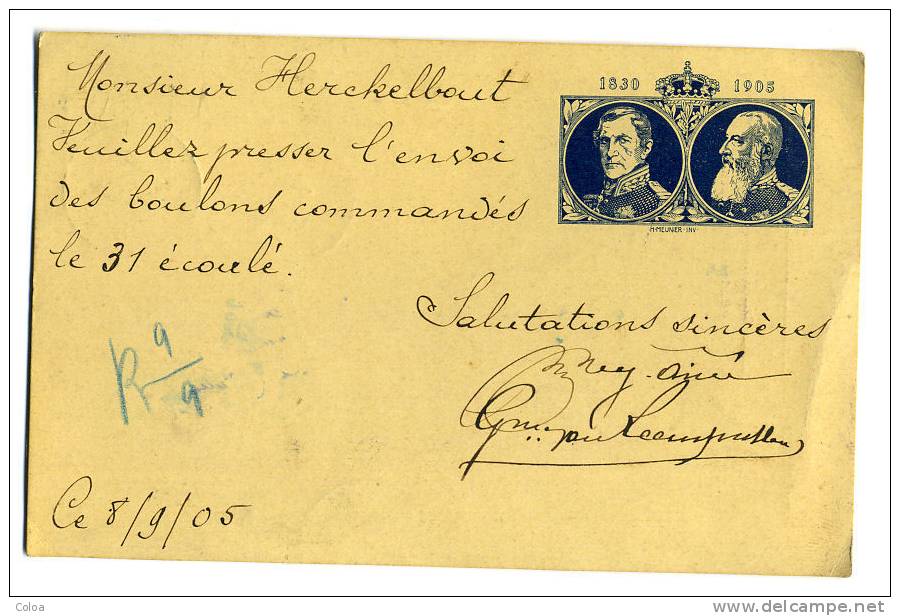 Monsieur Herckelbout
Veuillez presser l'envoi
des boulons commandés
le 31 écoulé.
1830 1905
H·MEUNIER·INV·
Salutations sincères
R 9/9
Ce 8/9/05
Coloa
delcampe.net